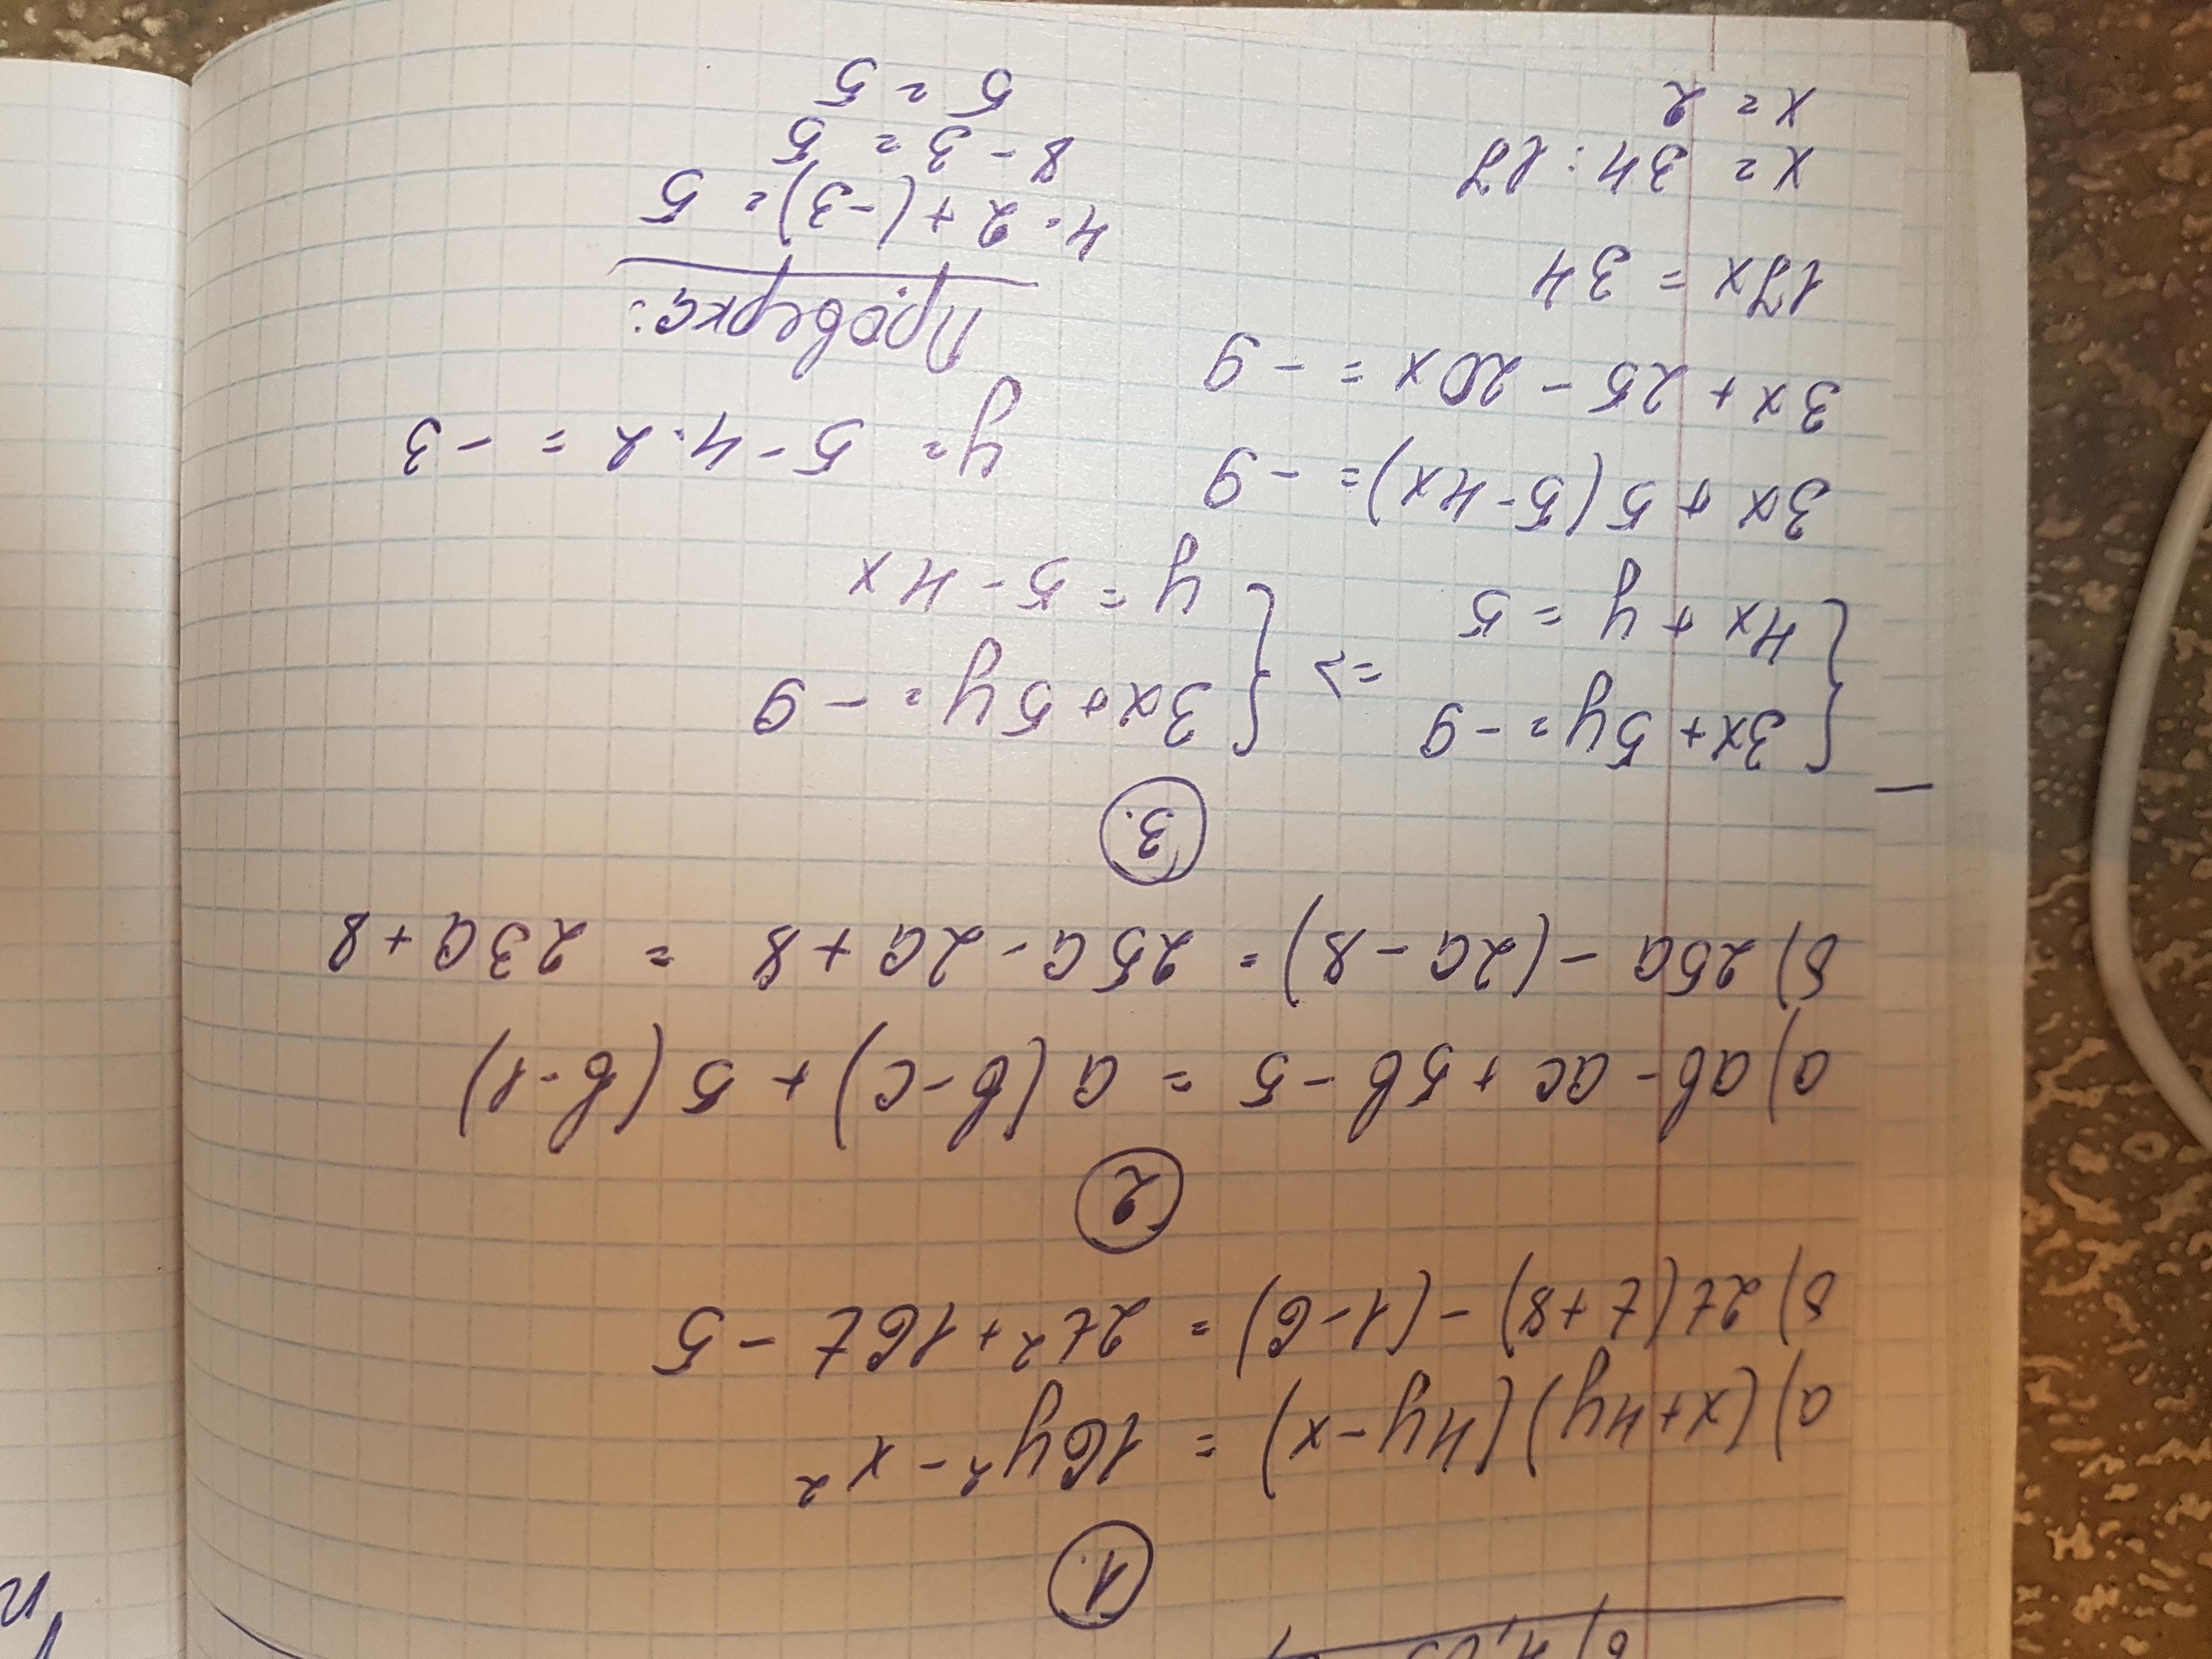 б) 4,03
1.
а) (x+4y)(4y-x) = 16y² - x²
б) 2t(t+8) - (1-6) = 2t² + 16t - 5
2
а) ab - ac + 5b - 5 = a(b-c) + 5(b-1)
б) 25a - (2a - 8) = 25a - 2a + 8 = 23a + 8
3.
{ 3x + 5y = -9 => { 3x + 5y = -9
4x + y = 5 y = 5 - 4x
3x + 5(5-4x) = -9
y = 5 - 4·2 = -3
3x + 25 - 20x = -9
17x = 34
x = 34 : 17
x = 2
Проверка:
4·2 + (-3) = 5
8 - 3 = 5
5 = 5